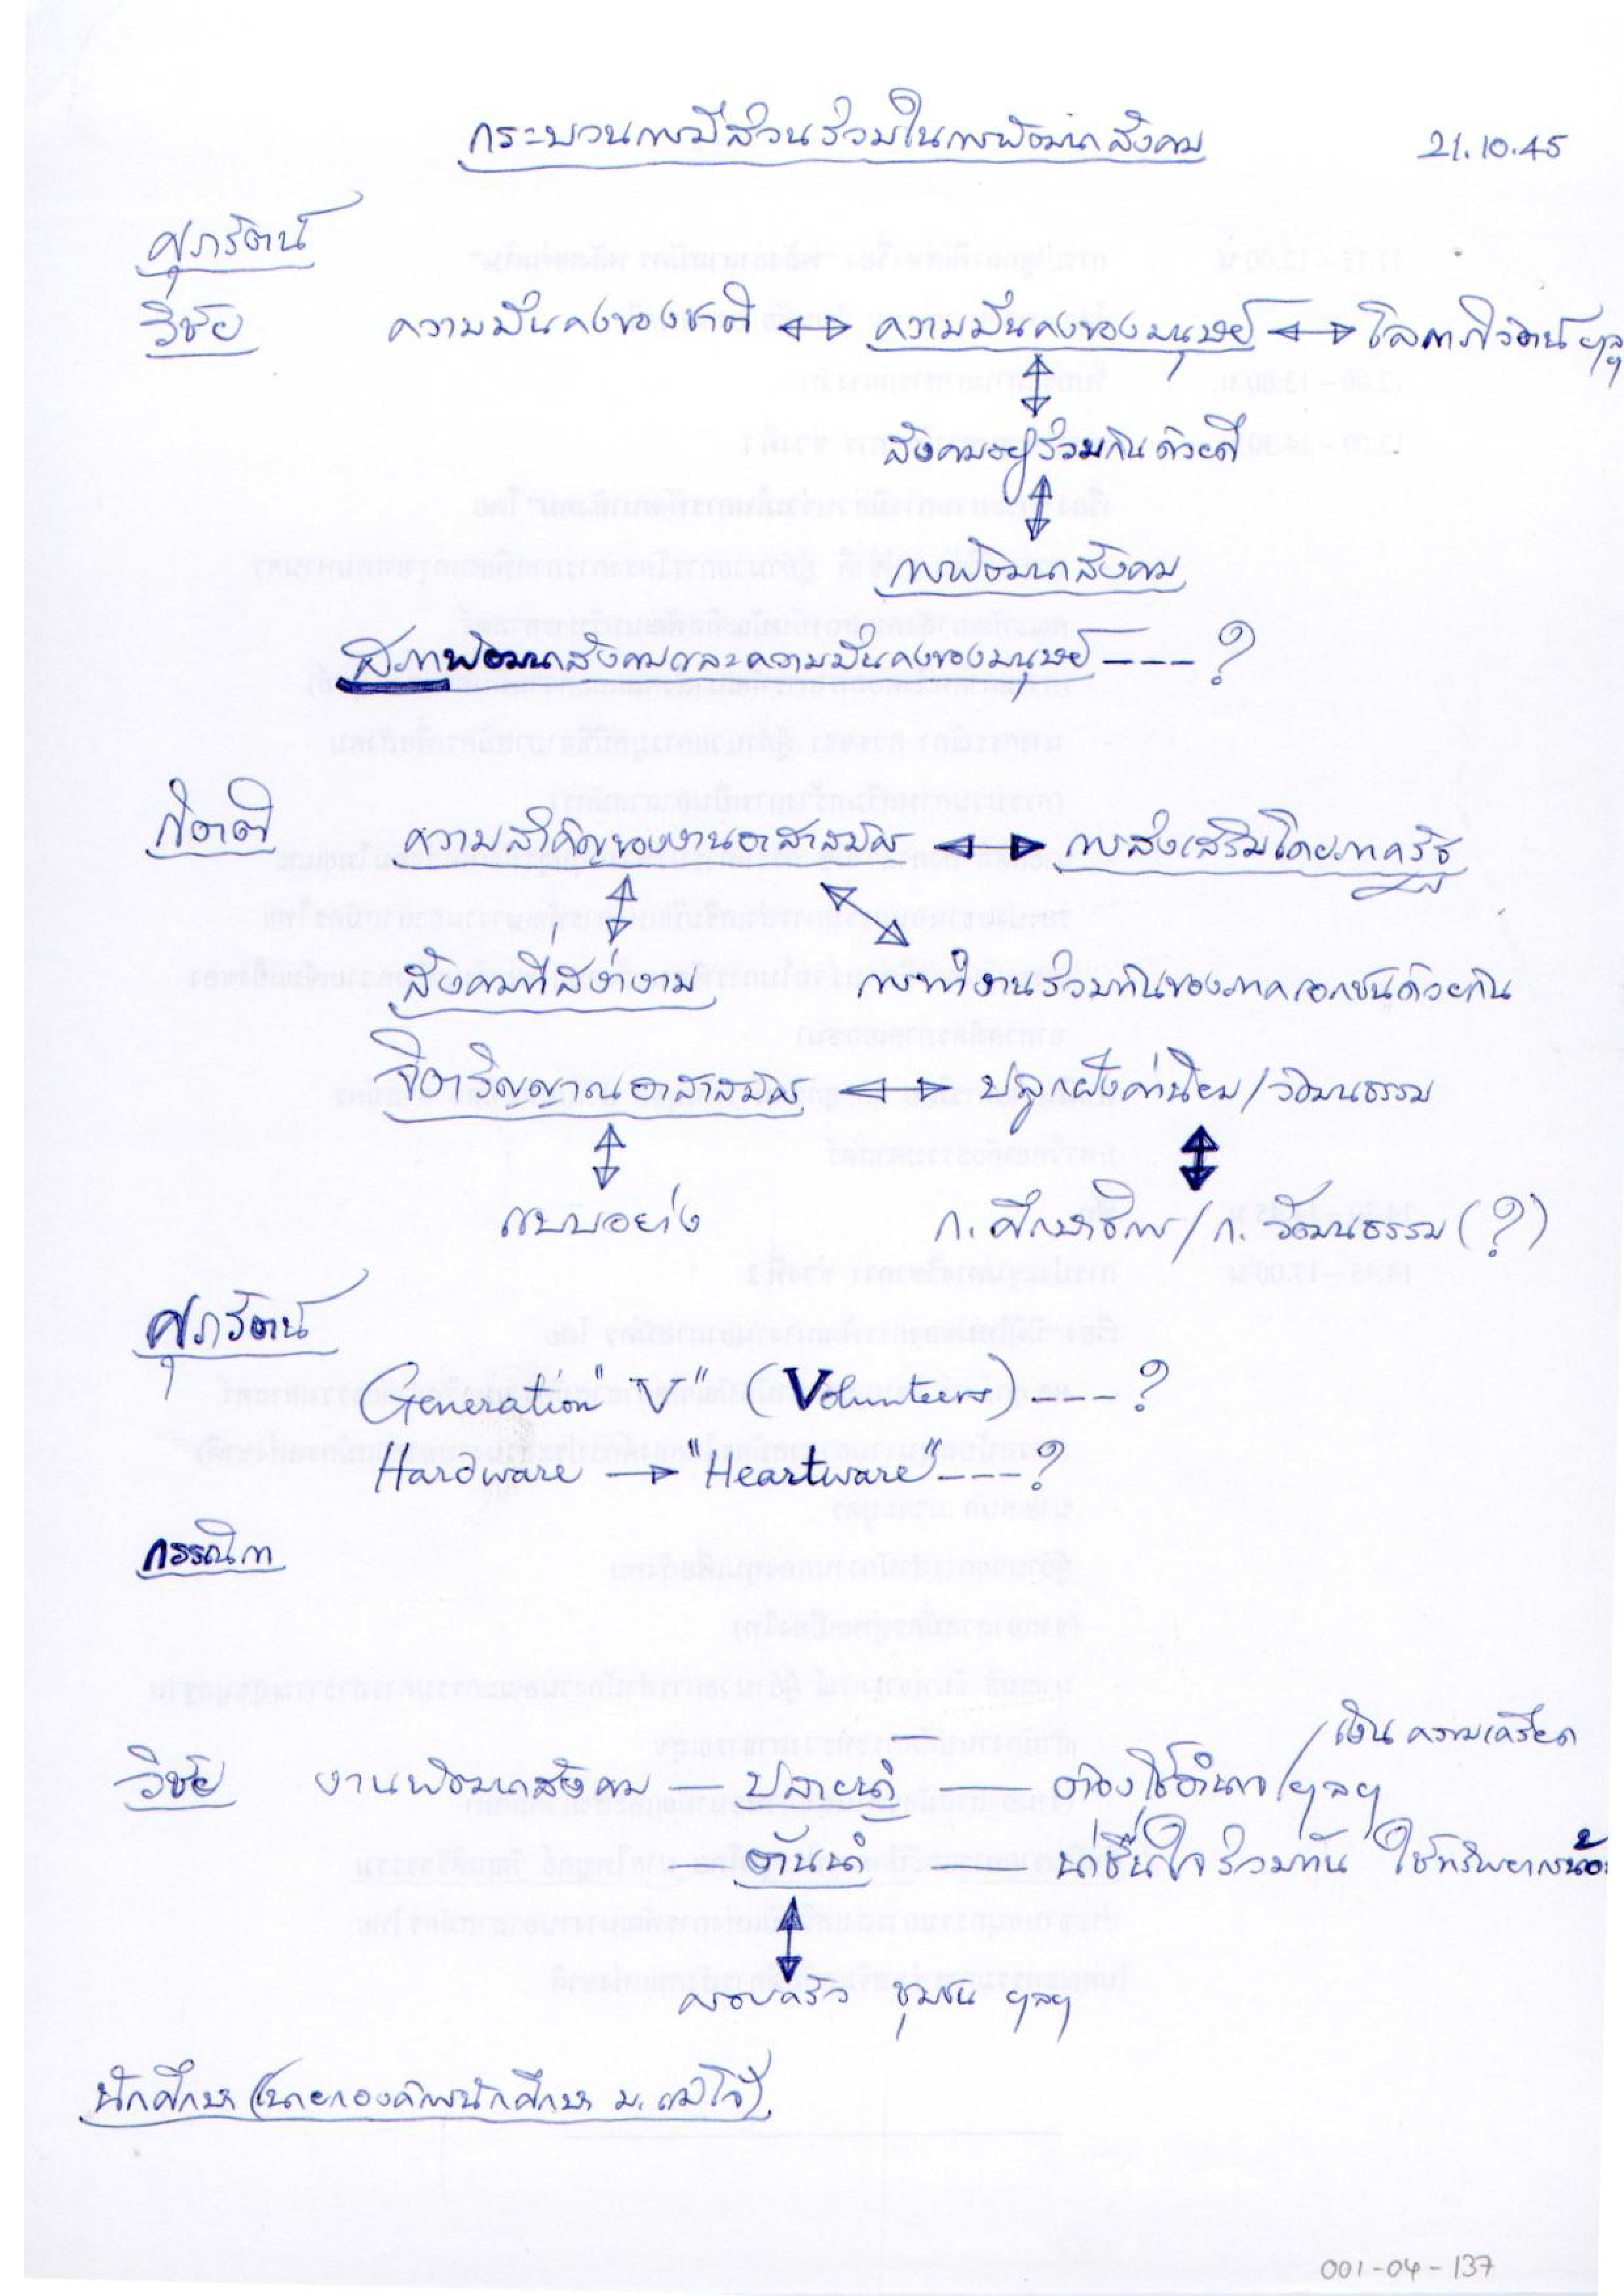 กระบวนการมีส่วนร่วมในการพัฒนาสังคม 21.10.45
ศุภรัตน์
วิชัย ความมั่นคงของชาติ ↔ ความมั่นคงของมนุษย์ ↔ โลกาภิวัตน์ ฯลฯ
สังคมอยู่ร่วมกันด้วยดี
การพัฒนาสังคม
สภาพัฒนาสังคมและความมั่นคงของมนุษย์ ---- ?
กิตติ ความสำคัญของงานอาสาสมัคร ↔ การส่งเสริมโดยภาครัฐ
สังคมที่สง่างาม การทำงานร่วมกันของภาคเอกชนด้วยกัน
จิตวิญญาณอาสาสมัคร ↔ ปลูกฝังค่านิยม/วัฒนธรรม
แบบอย่าง ก. ศึกษาธิการ/ก. วัฒนธรรม (?)
ศุภรัตน์
Generation "V" (Volunteers) ---- ?
Hardware → "Heartware" --- ?
กรรณิกา
/เงิน ความเครียด
วิชัย งานพัฒนาสังคม — ปลายน้ำ — ต้องใช้อำนาจ/ฯลฯ
— ต้นน้ำ — น่าชื่นใจร่วมกัน ใช้ทรัพยากรน้อ
ครอบครัว ชุมชน ฯลฯ
นักศึกษา (นายกองค์การนักศึกษา ม. แม่โจ้)
001-04-137